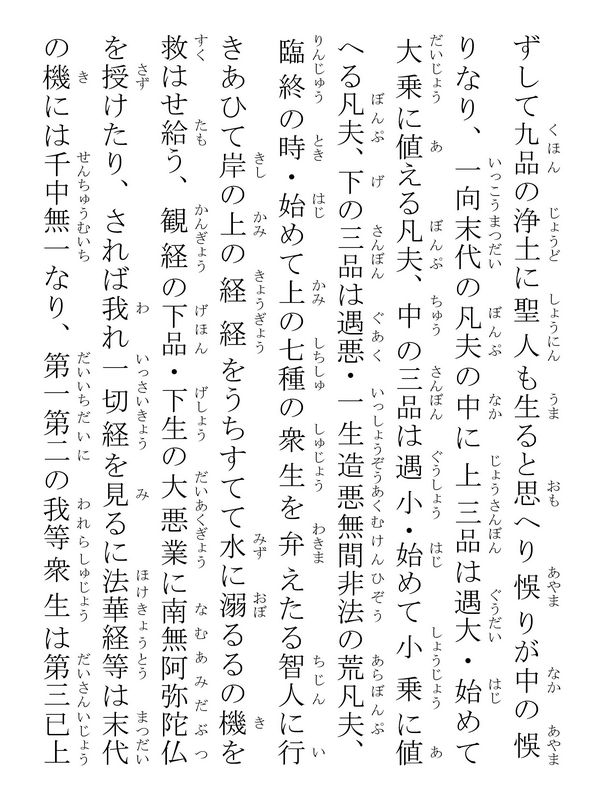 ずして九品の浄土に聖人も生ると思へり悞りが中の悞
りなり、一向末代の凡夫の中に上三品は遇大・始めて
大乗に値える凡夫、中の三品は遇小・始めて小乗に値
へる凡夫、下の三品は遇悪・一生造悪無間非法の荒凡夫、
臨終の時・始めて上の七種の衆生を弁えたる智人に行
きあひて岸の上の経経をうちすてて水に溺るるの機を
救はせ給う、観経の下品・下生の大悪業に南無阿弥陀仏
を授けたり、されば我れ一切経を見るに法華経等は末代
の機には千中無一なり、第一第二の我等衆生は第三已上